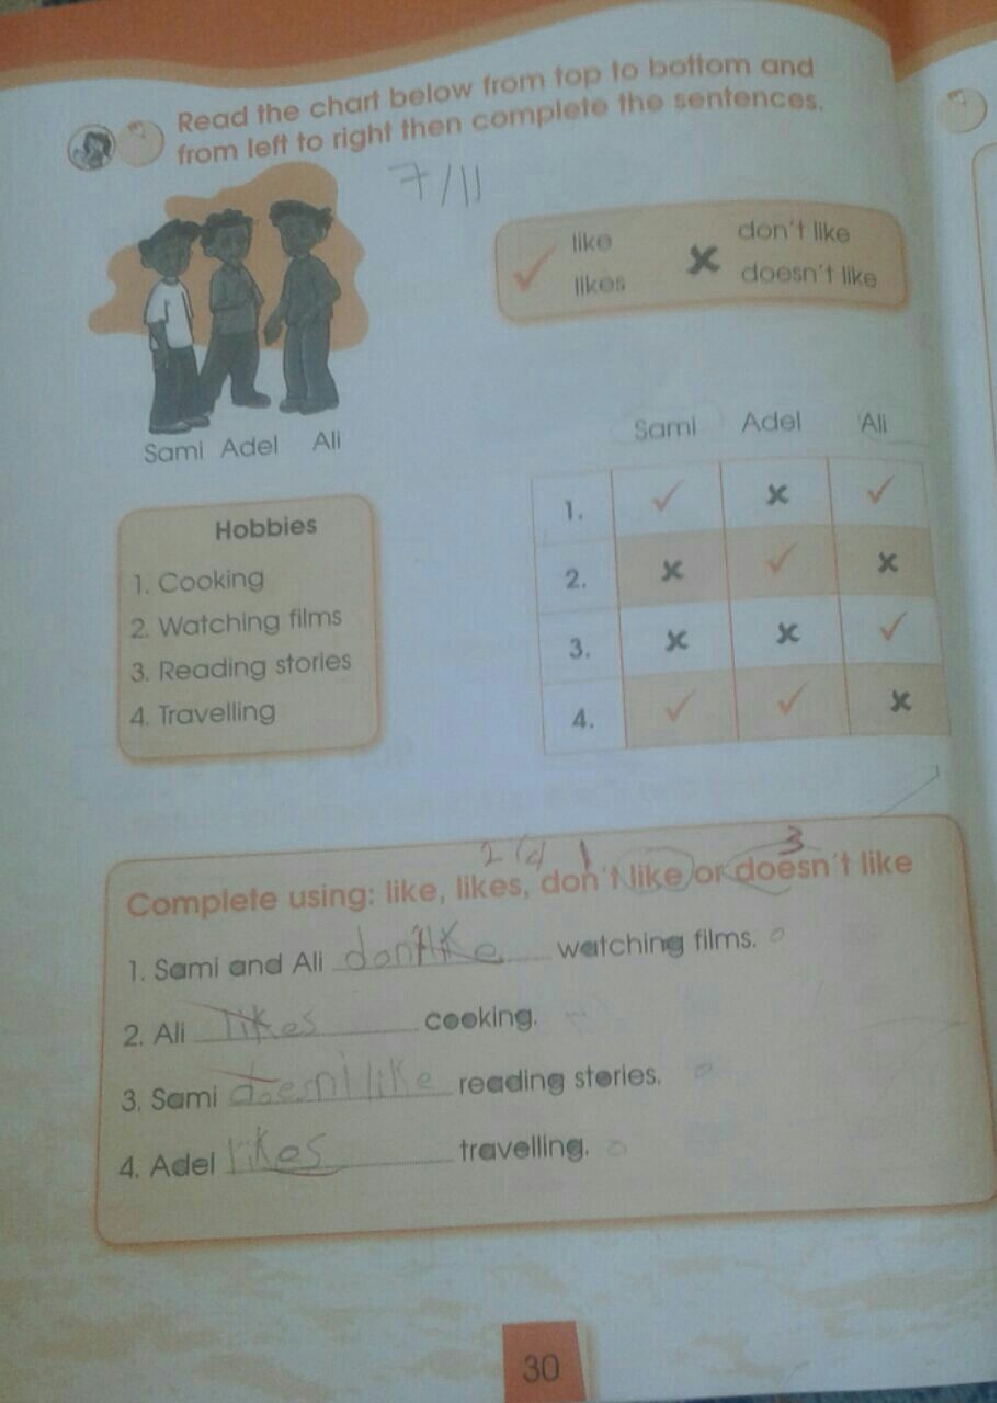 Read the chart below from top to bottom and
from left to right then complete the sentences.
7/11
like
likes
don't like
doesn't like
Sami Adel Ali
Hobbies
1. Cooking
2. Watching films
3. Reading stories
4. Travelling
Sami Adel Ali
1. ✓ ✗ ✓
2. ✗ ✓ ✗
3. ✗ ✗ ✓
4. ✓ ✓ ✗
2 1 3
Complete using: like, likes, don't like or doesn't like
1. Sami and Ali don't like watching films.
2. Ali likes cooking.
3. Sami doesn't like reading stories.
4. Adel likes travelling.
30